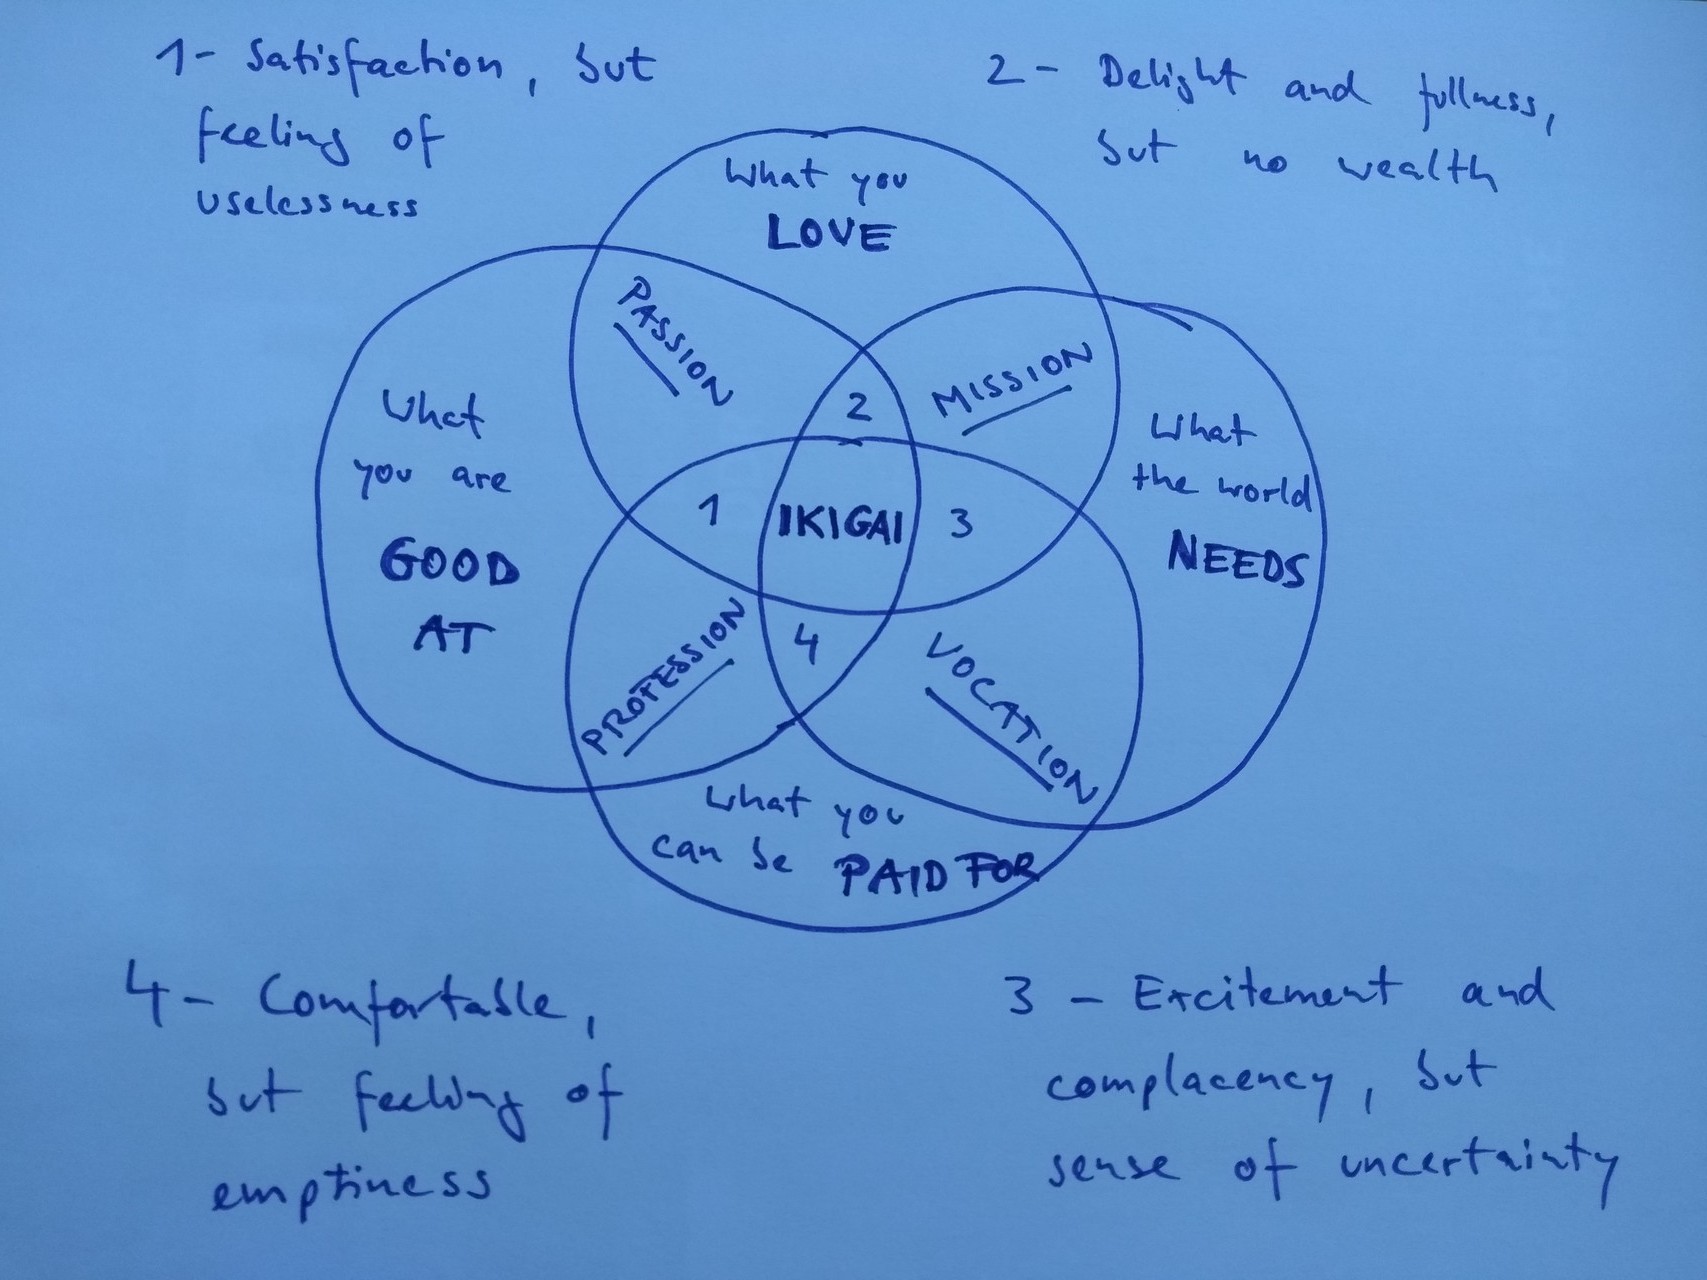 1- Satisfaction, but
feeling of
uselessness
2- Delight and fullness,
but no wealth
What you
LOVE
PASSION
MISSION
What
you are
GOOD
AT
What
the world
NEEDS
2
1
IKIGAI
3
4
PROFESSION
VOCATION
What you
can be PAID FOR
4- Comfortable,
but feeling of
emptiness
3 - Excitement and
complacency, but
sense of uncertainty